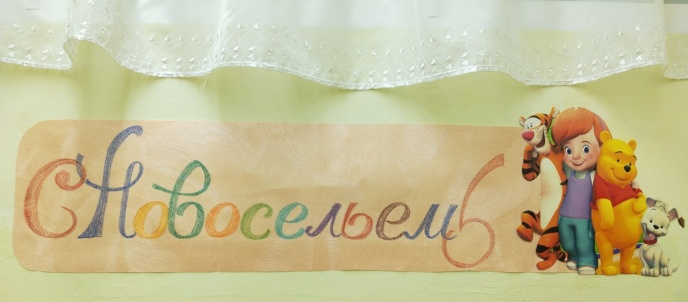 С Новосельем